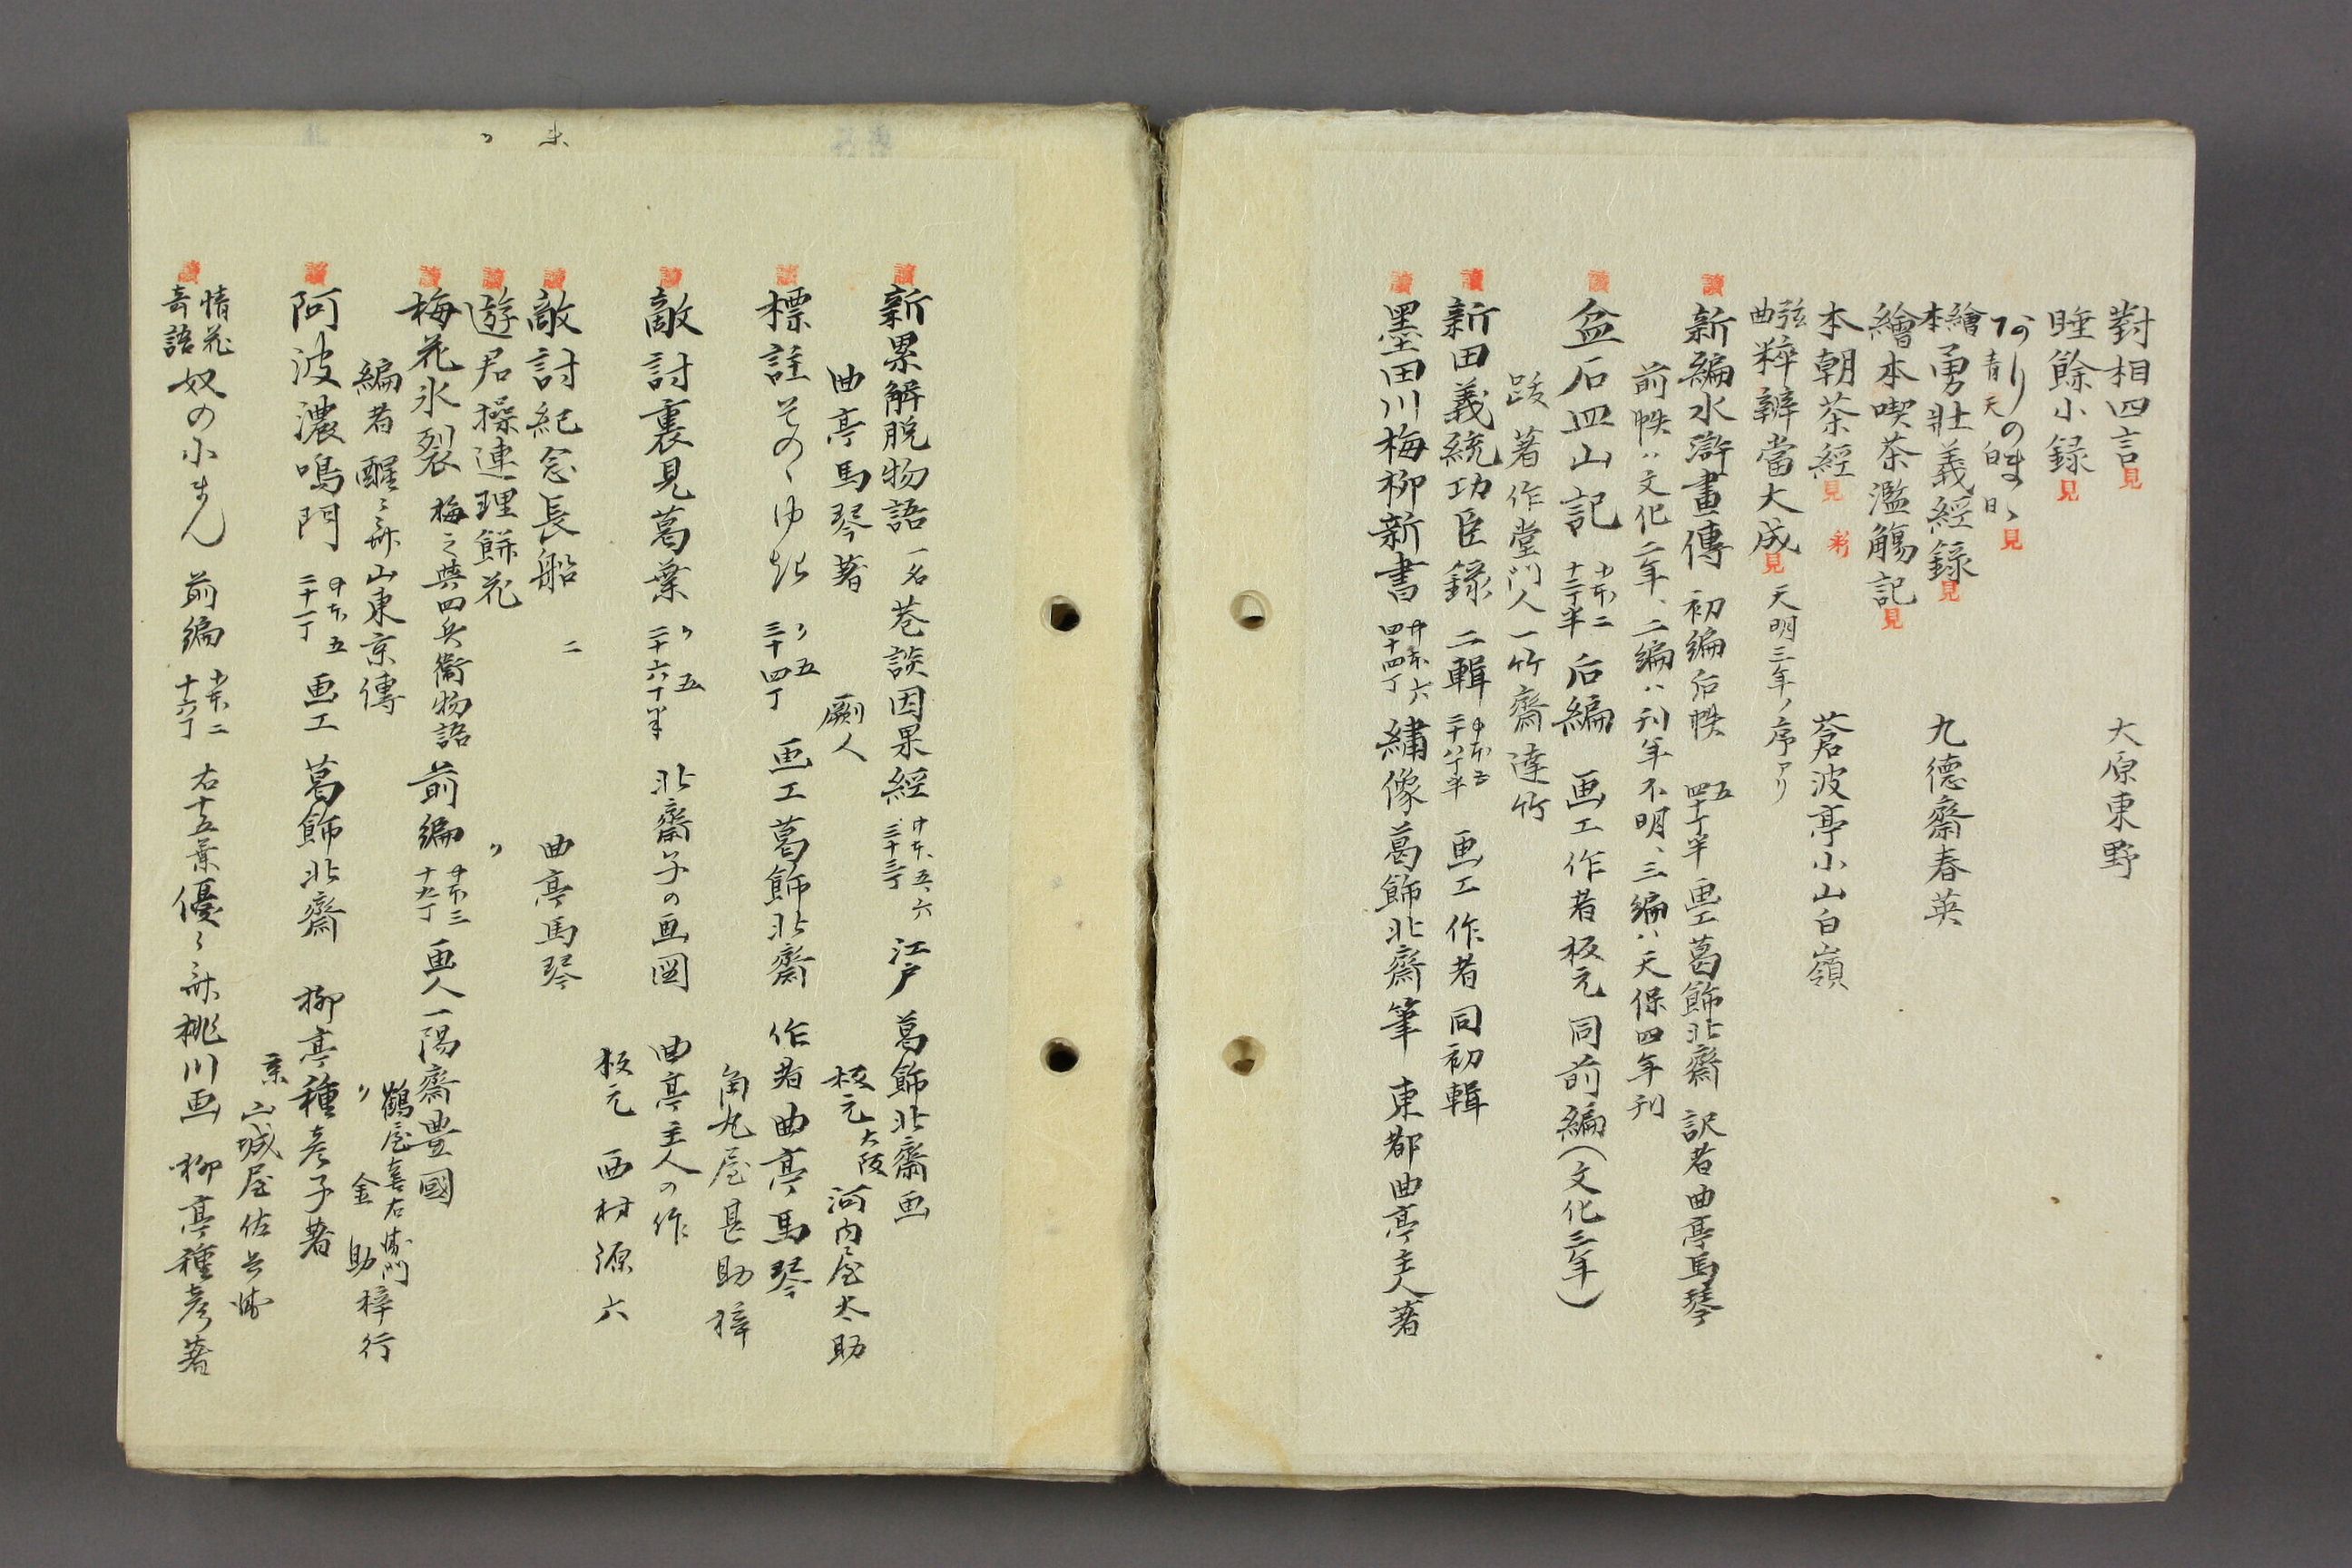 對相四言 見 大原東野
睡餘小録 見
見
繪本 勇壯義經録 見 九德齋春英
繪本喫茶濫觴記 見
本朝茶經 見 彩 蒼波亭小山白嶺
弦曲 粹辨當大成 見 天明三年ノ序アリ
讀 新編水滸畫傳 初編后帙 画工葛飾北齋 訳者曲亭馬琴
前帙ハ文化二年、二編ハ刊年不明、三編ハ天保四年刊
讀 盆石皿山記 后編 画工作者板元同前編（文化三年）
跋 著作堂門人一竹齋達竹
讀 新田義統功臣録 二輯 画工作者同初輯
讀 墨田川梅柳新書 六 四十四丁 繡像葛飾北齋筆 東都曲亭主人著
讀 新累解脱物語 一名巷談因果經 五、六 三十三丁 江戸 葛飾北齋画
曲亭馬琴著 一劂人 板元 大阪 河内屋太助
讀 標註そのゝゆき 〃五 三十四丁 画工葛飾北齋 作者曲亭馬琴
角丸屋甚助梓
讀 敵討裏見葛葉 〃五 二十六丁半 北齋子の画図 曲亭主人の作
板元 西村源六
讀 敵討紀念長船 二 曲亭馬琴
讀 遊君操連理餅花 〃
讀 梅花氷裂 梅之與四兵衞物語 前編 三 十九丁 画人一陽齋豊國
編者醒々齋山東京傳 鶴屋喜右衛門 〃 金助 梓行
讀 阿波濃鳴門 五 二十一丁 画工 葛飾北齋 柳亭種彦子著
京 山城屋佐兵衛
讀 情花奇語 奴の小まん 前編 二 十六丁 右十五葉優々齋桃川画 柳亭種彦著